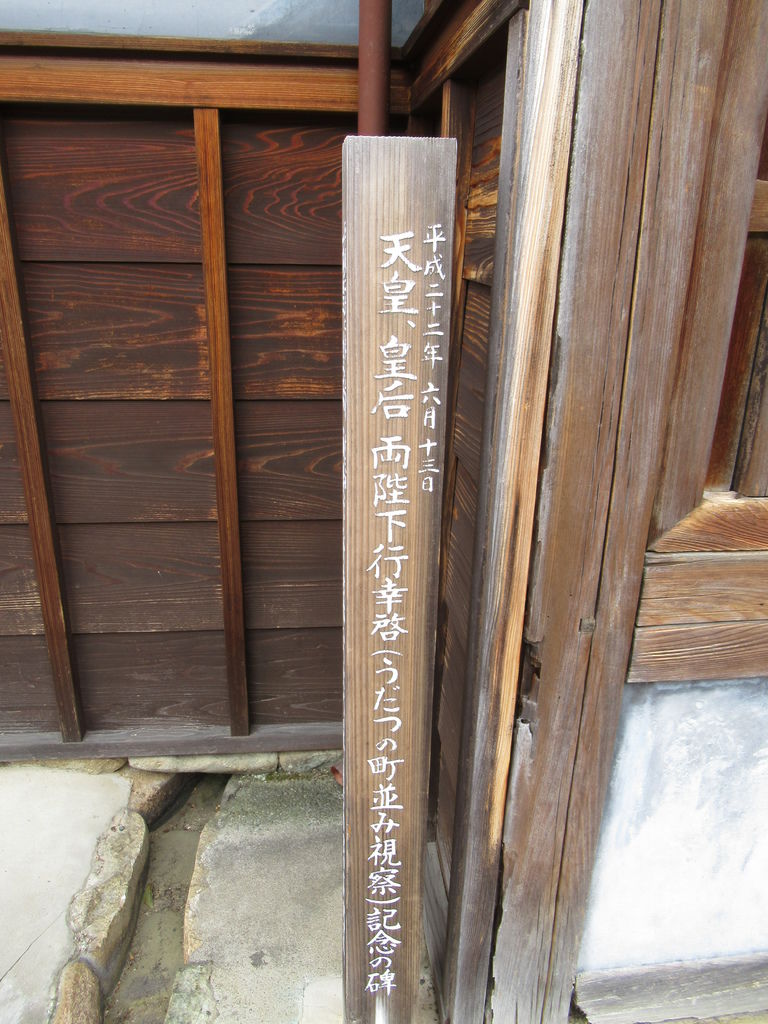 平成二十二年 六月十三日
天皇、皇后 両陛下行幸啓(うだつの町並み視察)記念の碑